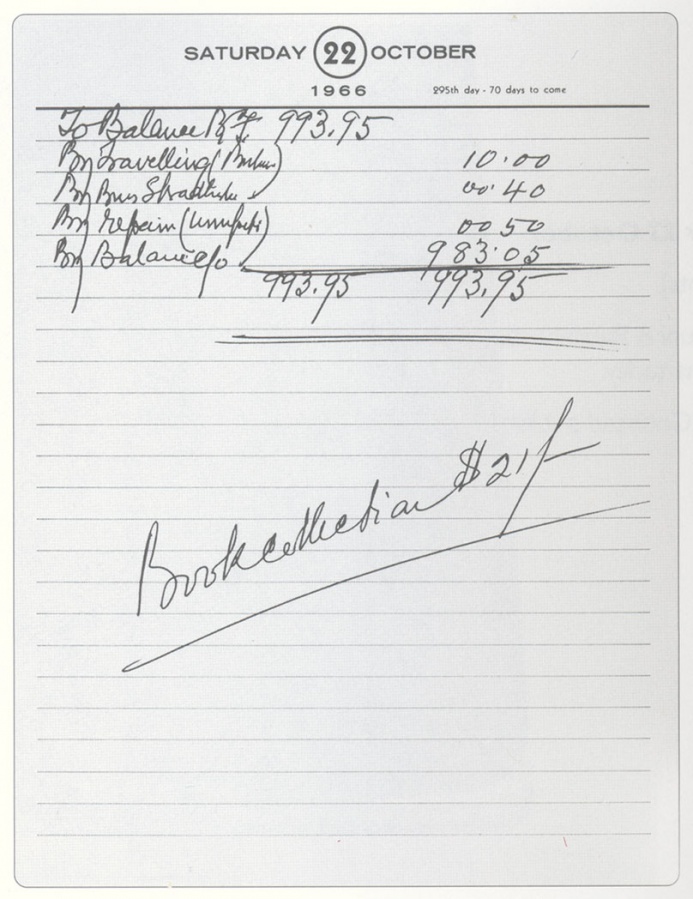 SATURDAY 22 OCTOBER
1966 295th day - 70 days to come
To Balance B/F 993.95
By Travelling 10.00
By Bus 00.40
By repair 00 50
By Balance c/o 983.05
993.95 993.95
Book collection $21/-